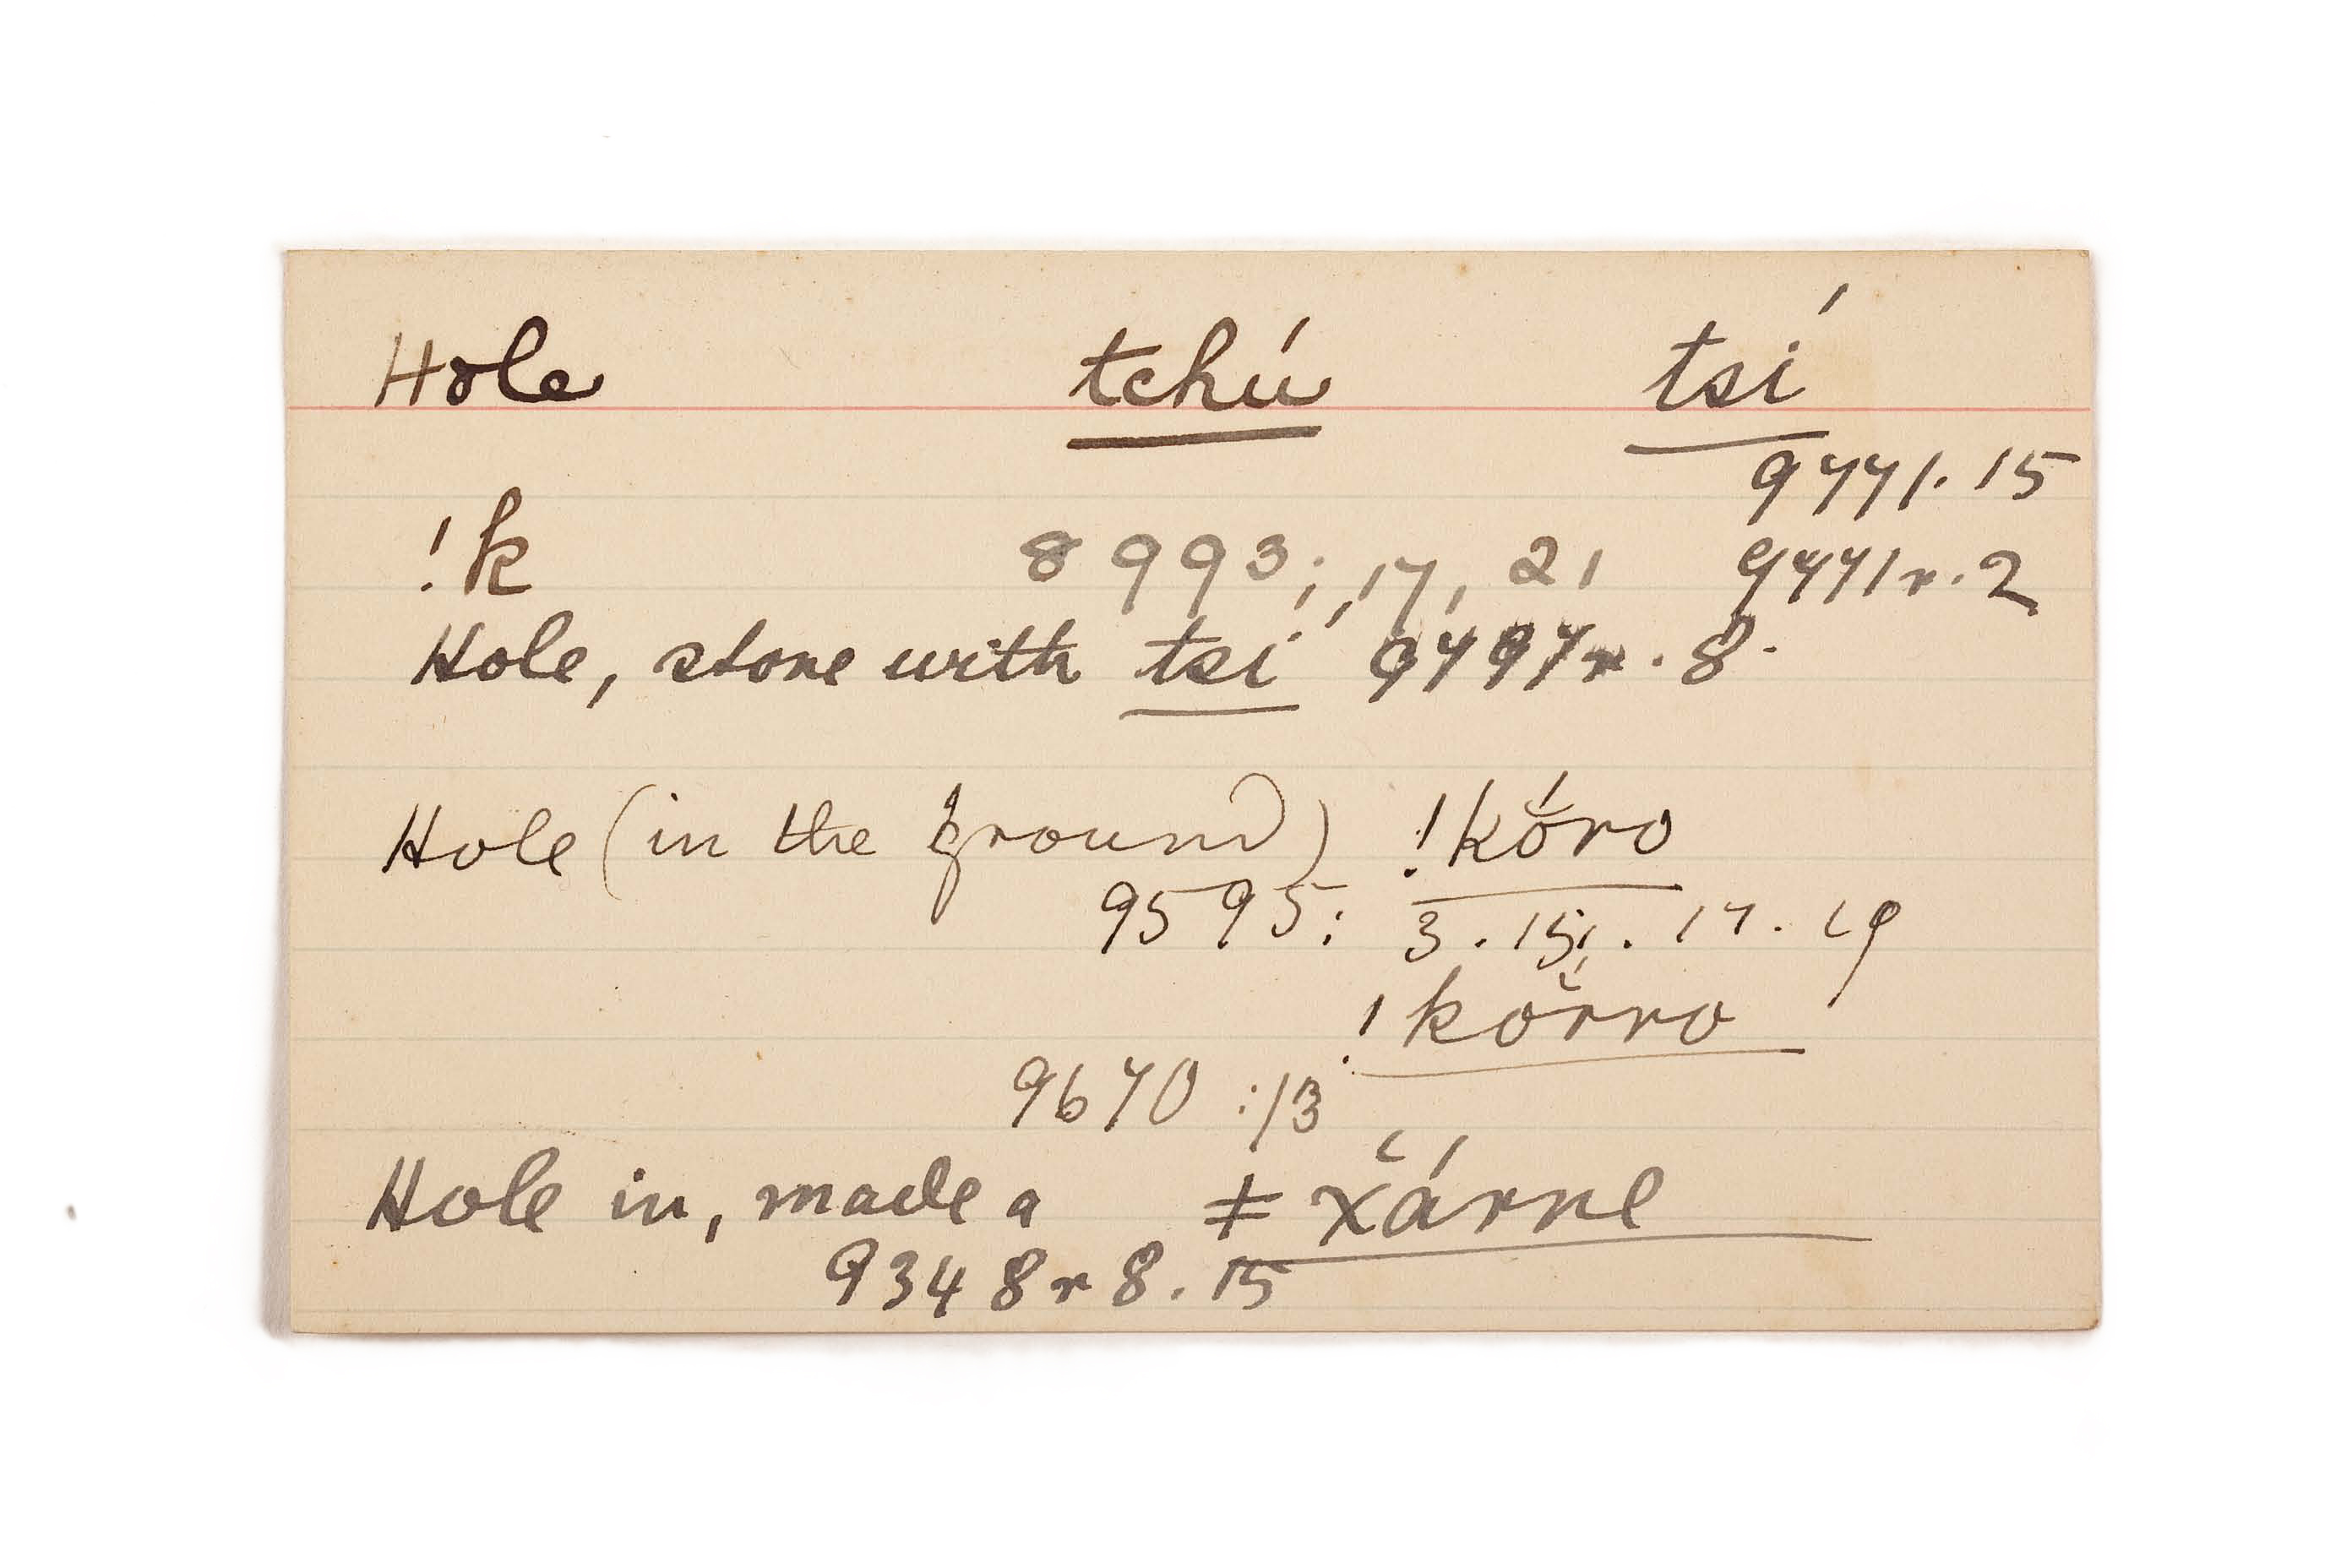 Hole tchú tsí
9771. 15
!k 8993; 17, 21 9771r. 2
Hole, stone with tsí 9797r. 8.
Hole (in the ground) !kŏ́ro
9595: 3. 15. 17. 19
!kŏ́rro
9670 :13
Hole in, made a ǂx̆árre
9348r 8. 15